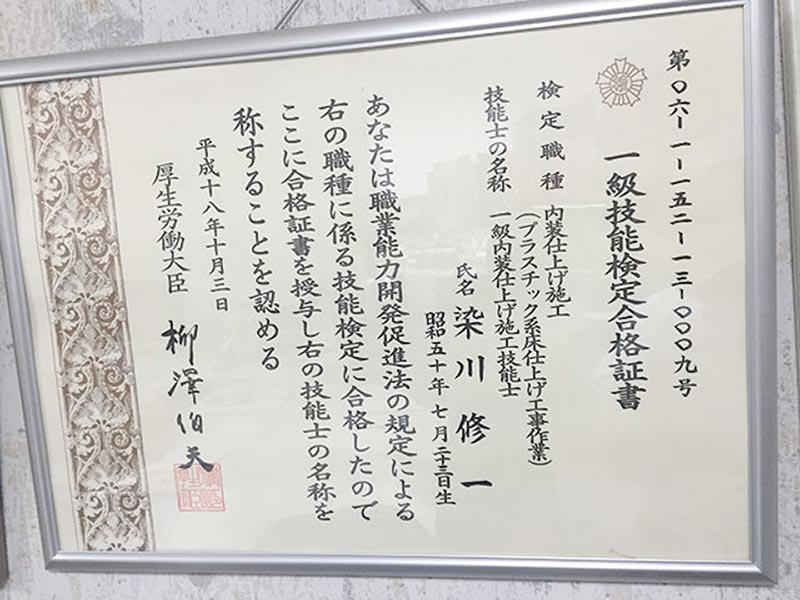 第〇六-一-一五二-一三-〇〇〇九号
一級技能検定合格証書
検定職種 内装仕上げ施工
(プラスチック系床仕上げ工事作業)
技能士の名称 一級内装仕上げ施工技能士
氏名 染川修一
昭和五十年七月二十三日生
あなたは職業能力開発促進法の規定による
右の職種に係る技能検定に合格したので
ここに合格証書を授与し右の技能士の名称を
称することを認める
平成十八年十月三日
厚生労働大臣 柳澤伯夫